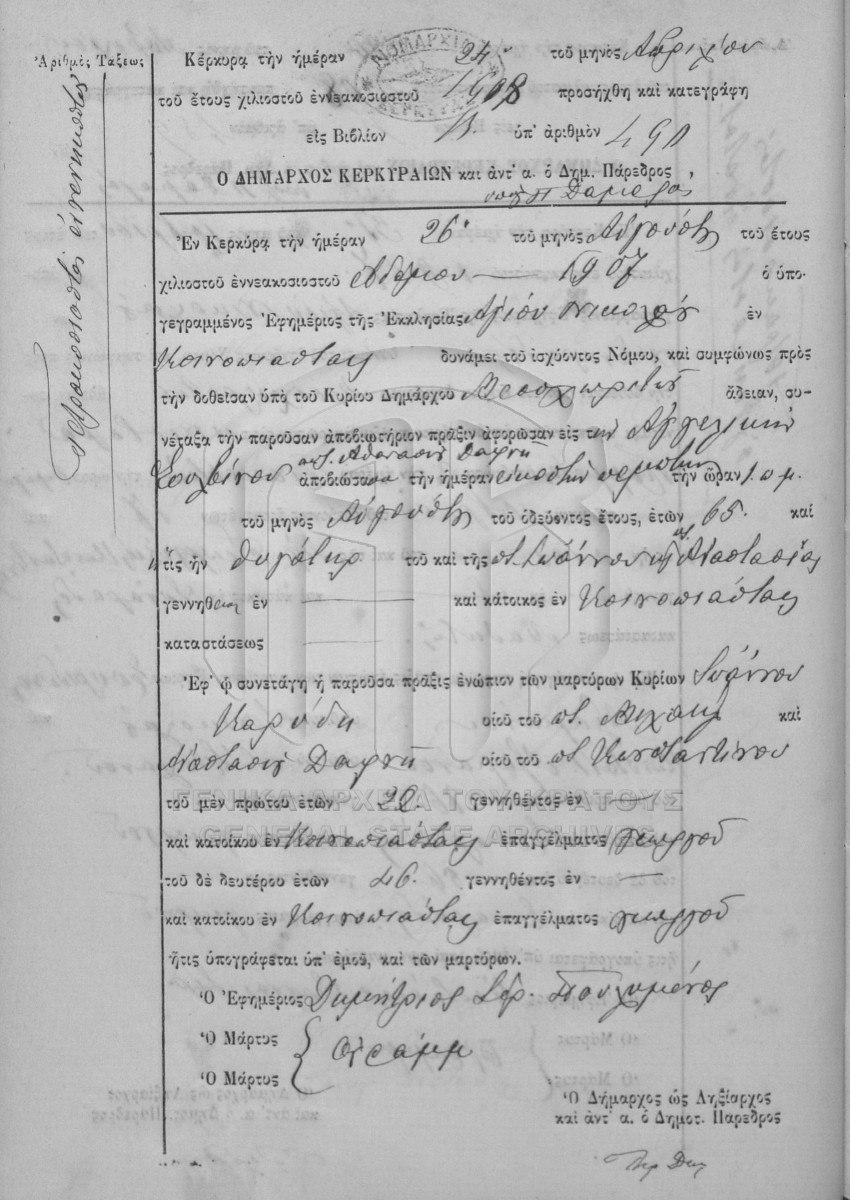 Ἀριθμὸς Τάξεως
Κέρκυρα τὴν ἡμέραν 24 τοῦ μηνὸς Ἀπριλίου
τοῦ ἔτους χιλιοστοῦ ἐννεακοσιοστοῦ 1908 προσήχθη καὶ κατεγράφη
εἰς Βιβλίον Β. ὑπ' ἀριθμὸν
Ο ΔΗΜΑΡΧΟΣ ΚΕΡΚΥΡΑΙΩΝ καὶ ἀντ' α. ὁ Δημ. Πάρεδρος
Ἐν Κερκύρᾳ τὴν ἡμέραν 26 τοῦ μηνὸς Αὐγούστου τοῦ ἔτους
χιλιοστοῦ ἐννεακοσιοστοῦ ἑβδόμου — 1907 ὁ ὑπο-
γεγραμμένος Ἐφημέριος τῆς Ἐκκλησίας Ἁγίου Νικολάου ἐν
Κυνοπιάσταις δυνάμει τοῦ ἰσχύοντος Νόμου, καὶ συμφώνως πρὸς
τὴν δοθεῖσαν ὑπὸ τοῦ Κυρίου Δημάρχου Μεσοχωριτῶν ἄδειαν, συ-
νέταξα τὴν παροῦσαν ἀποβιωτήριον πρᾶξιν ἀφορῶσαν εἰς τὴν Ἀγγελικὴν
Ἀθανασίου Δαφνῆ
ἀποβιώσασα τὴν ἡμέραν εἰκοστὴν πέμπτην τὴν ὥραν 1. π μ.
τοῦ μηνὸς Αὐγούστου τοῦ ὁδεύοντος ἔτους, ἐτῶν 65. καὶ
τις ἦν θυγάτηρ τοῦ καὶ τῆς ποτ. Ἰωάννου καὶ Ἀναστασίας
γεννηθεῖσα ἐν — καὶ κάτοικος ἐν Κυνοπιάσταις
καταστάσεως —
Ἐφ' ᾧ συνετάγη ἡ παροῦσα πρᾶξις ἐνώπιον τῶν μαρτύρων Κυρίων Ἰωάννου
Καρύδη υἱοῦ τοῦ ποτ. Μιχαὴλ καὶ
Ἀναστασίου Δαφνῆ υἱοῦ τοῦ ποτ. Κωνσταντίνου
τοῦ μὲν πρώτου ἐτῶν γεννηθέντος ἐν —
καὶ κατοίκου ἐν Κυνοπιάσταις ἐπαγγέλματος γεωργοῦ
τοῦ δὲ δευτέρου ἐτῶν 46. γεννηθέντος ἐν —
καὶ κατοίκου ἐν Κυνοπιάσταις ἐπαγγέλματος γεωργοῦ
ἥτις ὑπογράφεται ὑπ' ἐμοῦ, καὶ τῶν μαρτύρων.
Ὁ Ἐφημέριος Δημήτριος Πουλημένος
Ὁ Μάρτυς
Ὁ Μάρτυς
Ὁ Δήμαρχος ὡς Ληξίαρχος
καὶ ἀντ' α. ὁ Δημοτ. Πάρεδρος
ΓΕΝΙΚΑ ΑΡΧΕΙΑ ΤΟΥ ΚΡΑΤΟΥΣ
GENERAL STATE ARCHIVES